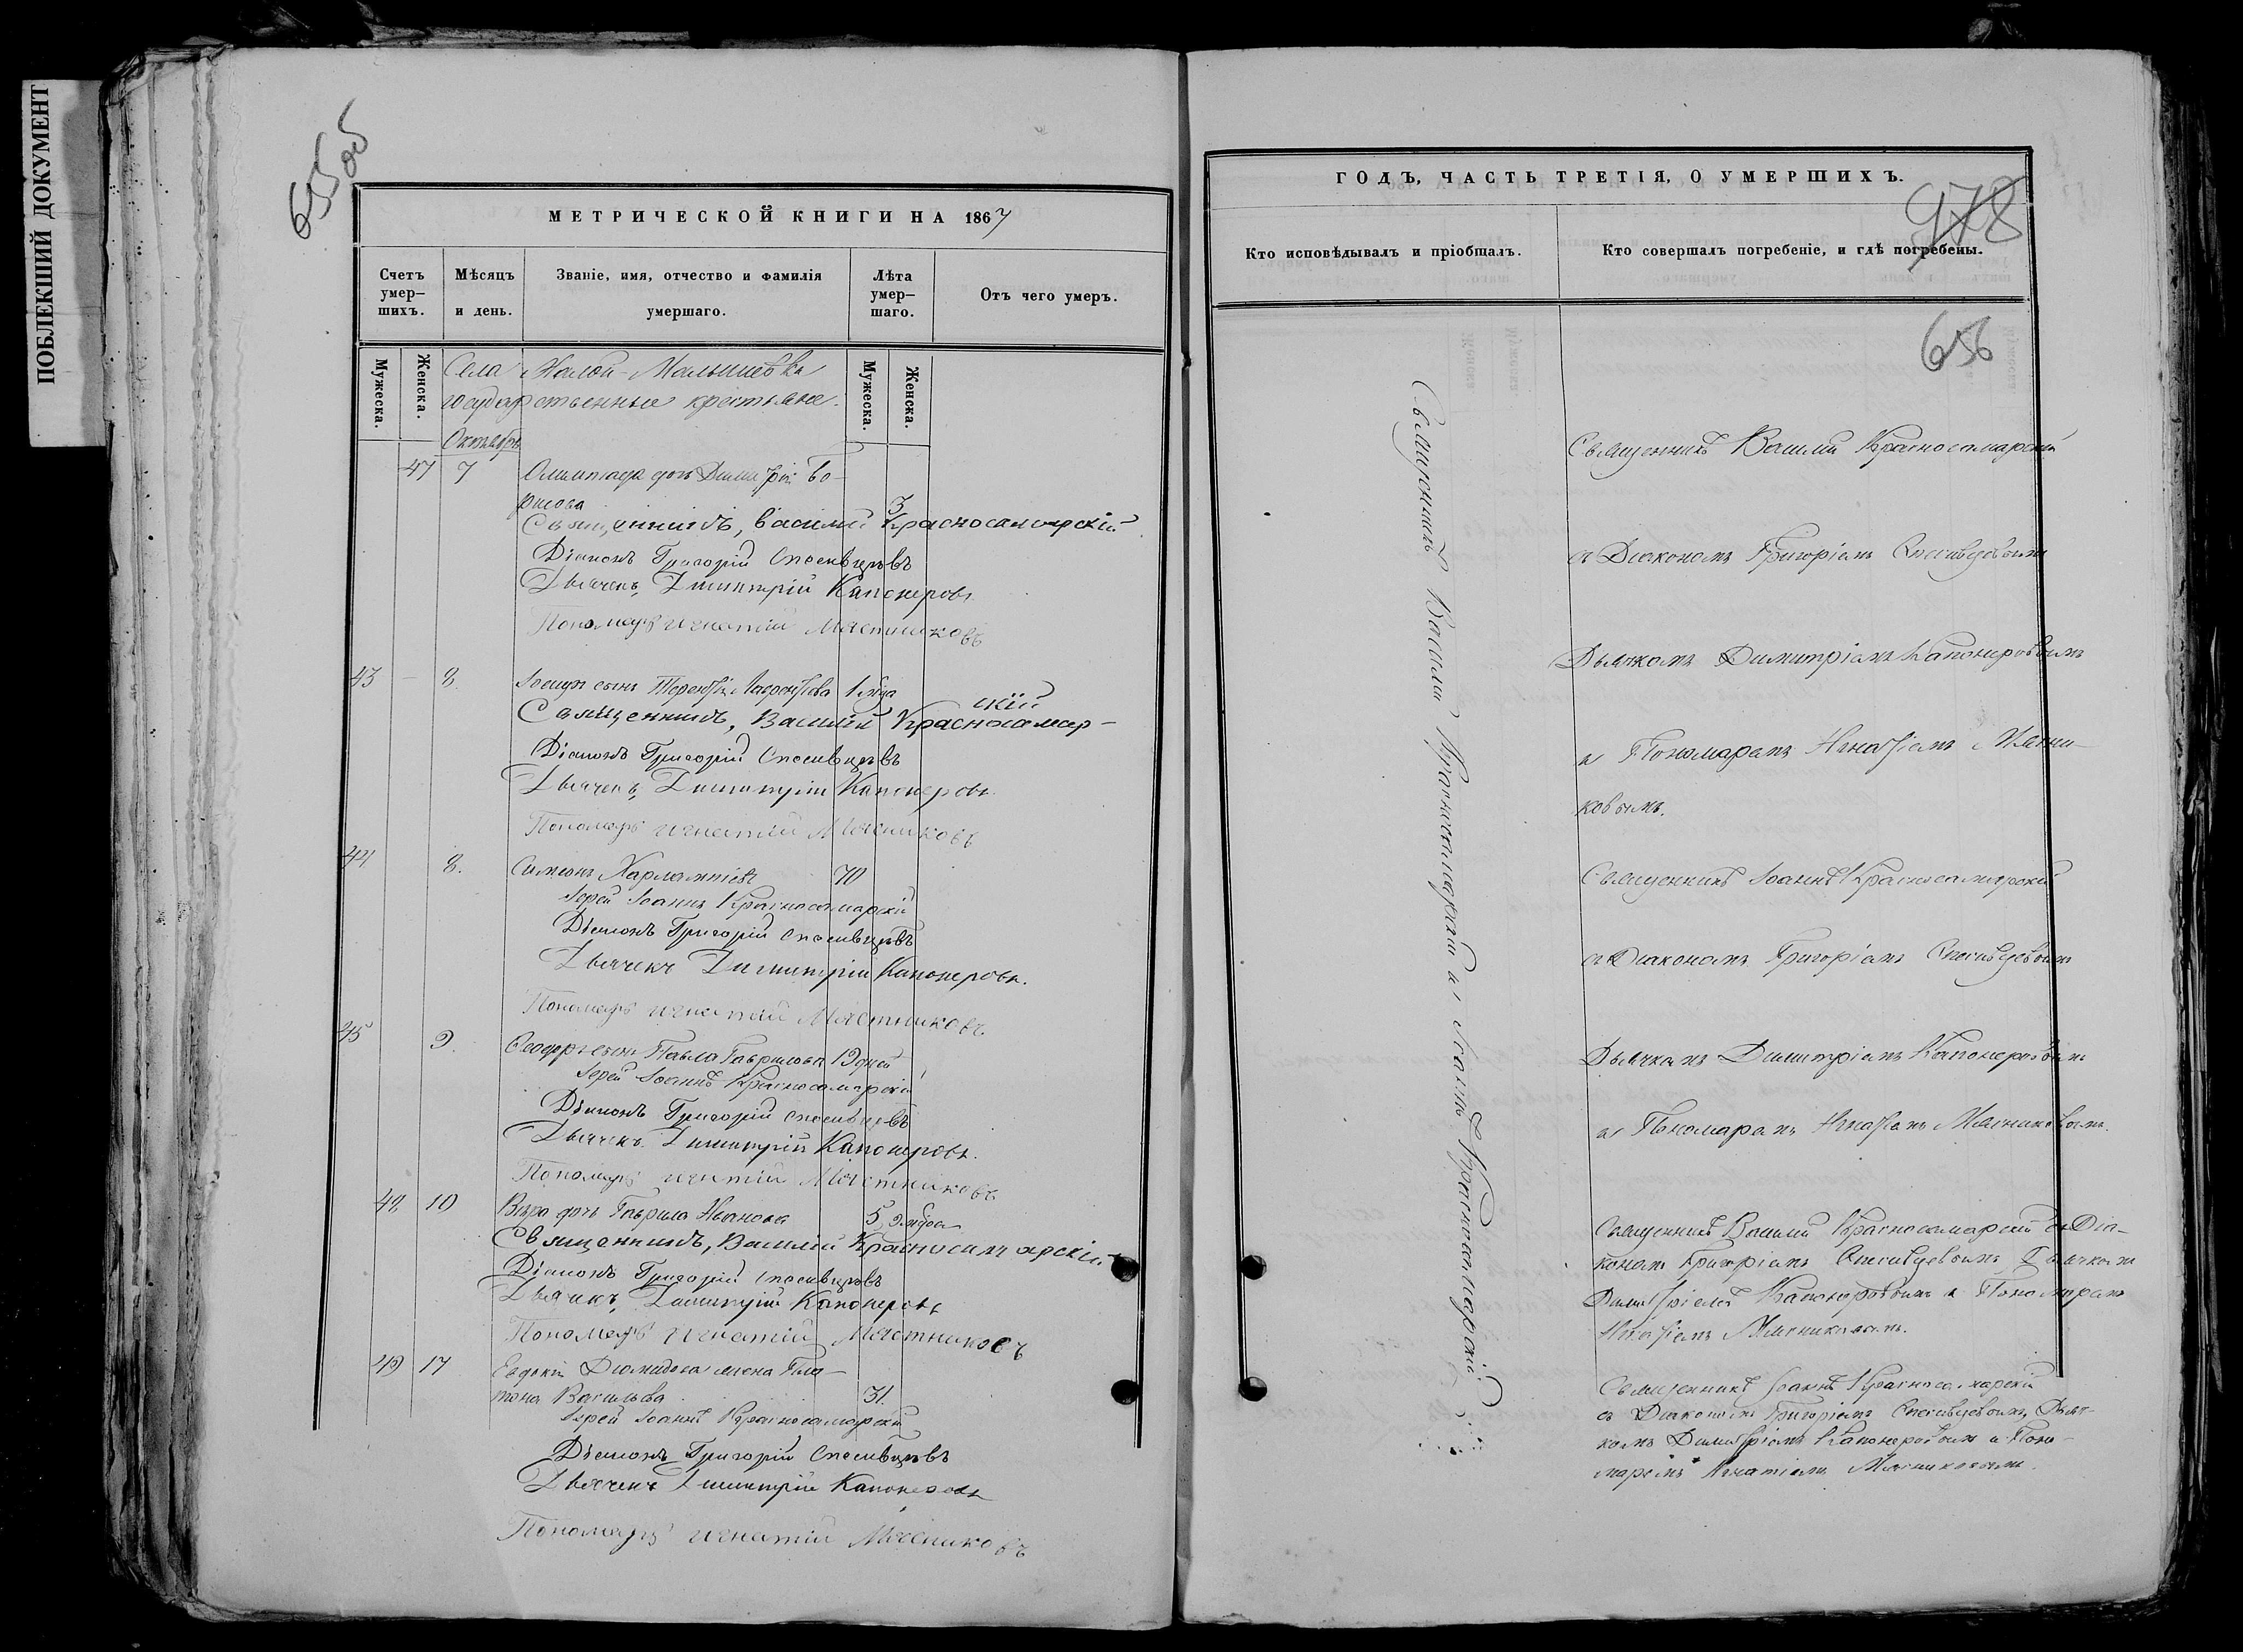 ПОБЛЕКШИЙ ДОКУМЕНТ
655 об
МЕТРИЧЕСКОЙ КНИГИ НА 1867
Счетъ умер-шихъ.
Мѣсяцъ и день.
Званіе, имя, отчество и фамилія умершаго.
Лѣта умер-шаго.
Отъ чего умеръ.
Мужеска.
Женска.
Мужеска.
Женска.
Села Малой-Малышевки
государственные крестьяне.
Октябрь
47 7 Олимпиада дочь Димитрія Бо-
рисова 3
Священникъ, Василій Красносамарскій
Діаконъ Григорій Спесивцевъ
Дьячекъ, Димитрій Капонеровъ
Пономарь Игнатій Мясниковъ
43 – 8. Іосифъ сынъ Терентія Лаврентьева 1 года
Священникъ, Василій Красносамар-
скій
Діаконъ Григорій Спесивцевъ
Дьячекъ, Димитрій Капонеровъ
Пономарь Игнатій Мясниковъ
44 8. Симеонъ Харлампіевъ 70
Іерей Іоаннъ Красносамарскій
Діаконъ Григорій Спесивцевъ
Дьячекъ Димитрій Капонеровъ.
Пономарь Игнатій Мясниковъ
45 9. Ѳеодоръ сынъ Павла Гаврилова 19 дней
Іерей Іоаннъ Красносамарскій
Діаконъ Григорій Спесивцевъ
Дьячекъ Димитрій Капонеровъ.
Пономарь Игнатій Мясниковъ
48 10 Вѣра дочь Гаврила Иванова 5
Священникъ, Василій Красносамарскій
Діаконъ Григорій Спесивцевъ
Дьячекъ, Димитрій Капонеровъ
Пономарь Игнатій Мясниковъ
49 17 Евдокія Діомидова жена Пла-
тона Васильева 31.
Іерей Іоаннъ Красносамарскій
Діаконъ Григорій Спесивцевъ
Дьячекъ Димитрій Капонеровъ
Пономарь Игнатій Мясниковъ
ГОДЪ, ЧАСТЬ ТРЕТІЯ, О УМЕРШИХЪ.
978
Кто исповѣдывалъ и пріобщалъ.
Кто совершалъ погребеніе, и гдѣ погребены.
656
Священникъ Василій Красносамарскій и Іоаннъ Красносамарскій.
Священникъ Василій Красносамарскій
съ Діакономъ Григоріемъ Спесивцевымъ
Дьячкомъ Димитріемъ Капонеровымъ
и Пономаремъ Игнатіемъ Мясни-
ковымъ.
Священникъ Іоаннъ Красносамарскій
съ Діакономъ Григоріемъ Спесивцевымъ
Дьячкомъ Димитріемъ Капонеровымъ
и Пономаремъ Игнатіемъ Мясниковымъ.
Священникъ Василій Красносамарскій съ Діа-
кономъ Григоріемъ Спесивцевымъ Дьячкомъ
Димитріемъ Капонеровымъ и Пономаремъ
Игнатіемъ Мясниковымъ.
Священникъ Іоаннъ Красносамарскій
съ Діакономъ Григоріемъ Спесивцевымъ, Дьяч-
комъ Димитріемъ Капонеровымъ и Поно-
маремъ Игнатіемъ Мясниковымъ.